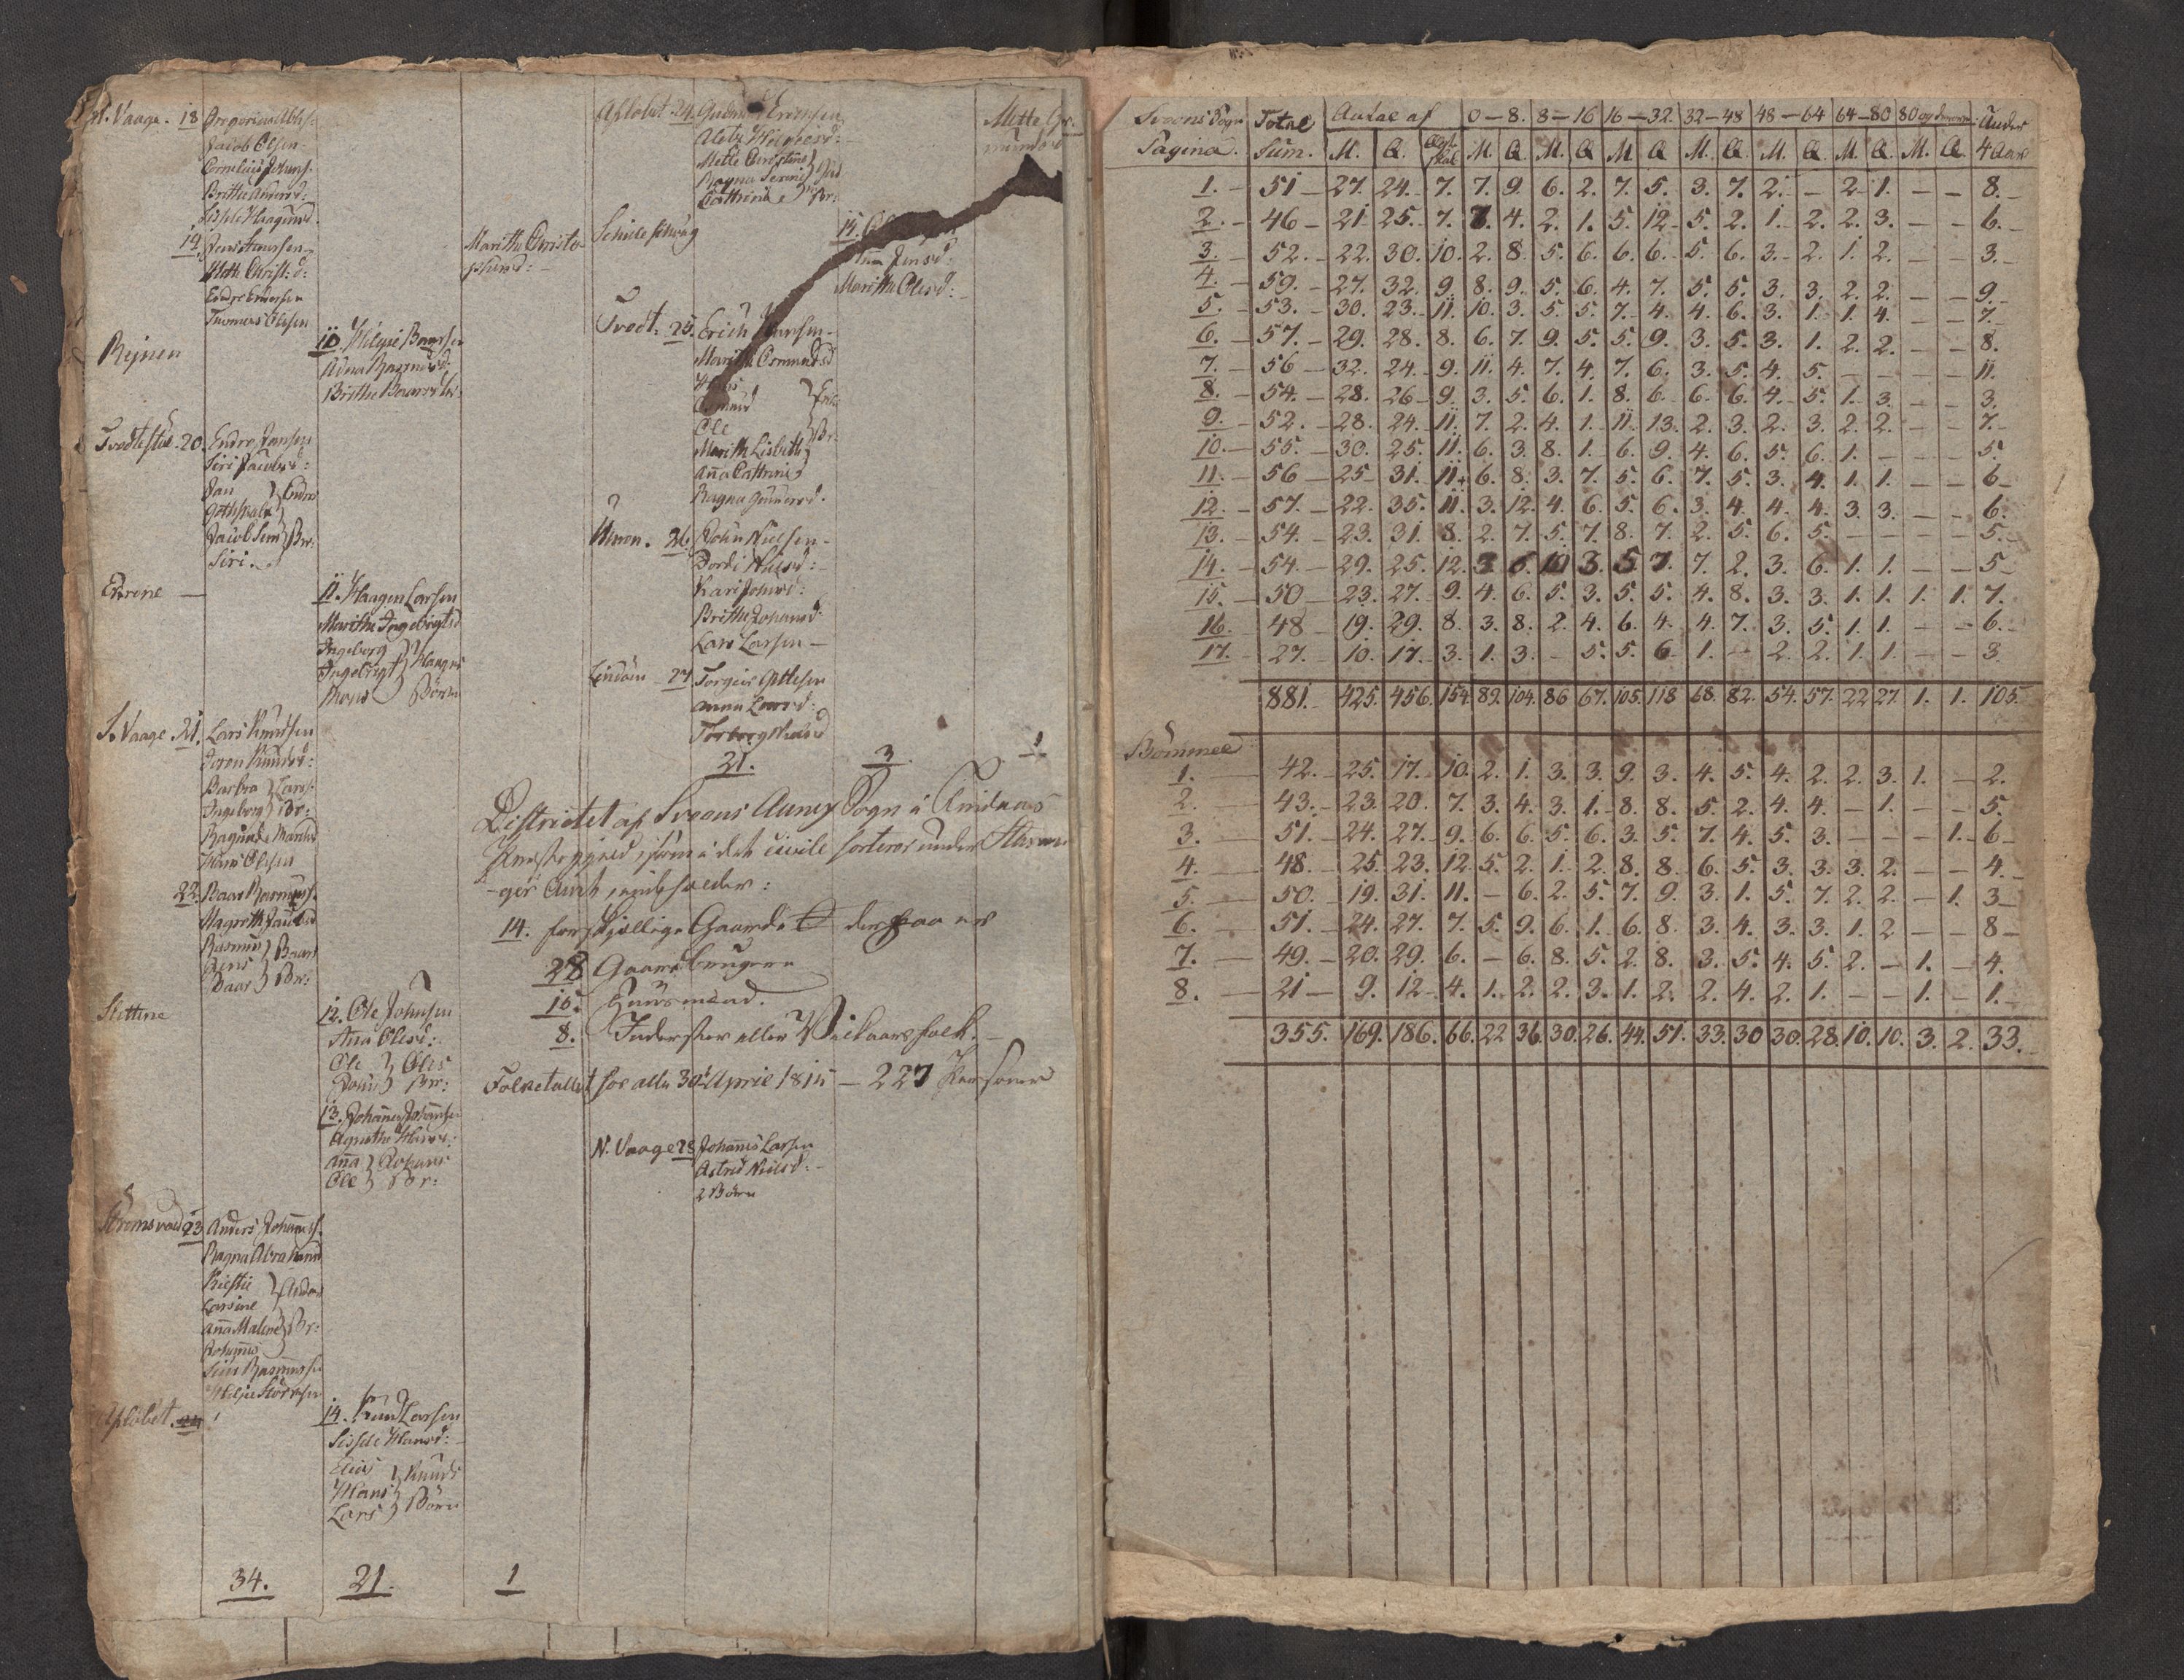 N. Vaage. 18 Gregorius Abels:
Jacob Olsen
Cornelius Johans:
Brithe Anders d:
Sissele Haagens d.
19. Jens Hansen
Marithe Christo-
phers d: -
Mette Christ: d:
Endre Endresen
Thomas Olsen
Rejnen
10. Helgie Baarsen
Adna Rasmus d.
Brithe Baars d:
Tvedtestøe. 20. Endre Jansen
Siri Jacobs d:
Jan } Endres
Gothskalk
Jacob Semb } Br:
Siri.
11. Haagen Larsen
Marithe Ingebrigts d
Ingeborg } Haagens
Ingebrigt
Mons } Börn
S. Vaage 21. Lars Knudsen
Joren Knuds d:
Barbra } Lars:
Ingeborg } Br:
Hans Olsen
22. Baar Rasmuss:
Magrethe Jacobs d
Rasmus } Baars
Jens
Baar } Br:
12. Ole Johnsen
Ana Oles d:
Ole } Oles
John } Br:
13. Johannes Johannesen
Agnethe Hans d:
Ana } Johans
Ole } Br:
23 Anders Johanness.
Ragna Abraham d
Kirstie } Anders
Larsine
Ana Malene } Br:
Johannes
Siur Rasmussen
Helje Störksen
Apløbet. 24
14. Knud Larsen
Sissele Hans d:
Elias } Knuds
Hans
Lars } Börn
34. 21. 1
Apløbet 24.
Mette Christine
Cathrina
Br:
Mette Gu
munds d
15.
Jens d:
Maritha Oles d:
Tvedt. 25. Erich Hansen
Marithe
Hans
Ole
Br:
Marithe Lisbeth
Ana Cathrine
Ragna Gunders d.
26 John Nielsen -
Bordi Niels d: -
Kari Johns d:
Brithe Johans d
Lars Larsen -
Lindöen - 27 Torgier Gittlesen
Anna Lars d:
Torborg
31. 3 1
Districtet af Svoens Annex Sogn i Findaas
Præstegjeld, som i det civile sorterer under Stavan-
ger Amt, indeholder:
14. forskjællige Gaarde & derpaa er
28 Gaardbrugere
15. Huusmænd.
8. Inderster eller Vilkaarsfolk. -
Folketallet for alle 30te April 1815 - 227 Personer
N. Vaage 28 Johannes Larsen
Astrid Niels d: -
2 Börn
Svoens Sogn Total Antal af 0-8. 8-16 16-32. 32-48 48-64 64-80 80 og derover. Under
Pagina. Sum. M. Q. M. Q. M. Q M Q M. Q. M. Q. M. Q. M. Q. 4 Aar
1. - 51 - 27. 24. - 7. 7. 9. 6. 2. 7. 5. 3. 7. 2. - 2. 1. - - 8. -
2. - 46 - 21 25. - 7. 7. 4. 2. 1. 5. 12. 5. 2. 1. 2. 2. 3. - - 6. -
3. - 52. - 22. 30. 10. 2. 8. 5. 6. 6. 6. 5. 6. 3. 2. 1. 2. - - 3. -
4. - 59. - 27. 32. 9. 8. 9. 5. 6. 4. 7. 5. 5. 3. 3. 2. 2. - - 9. -
5. - 53. - 30. 23. 11. 10. 3. 5. 5. 7. 4. 4. 6. 3. 1. 1. 4. - - 7. -
6. - 57. - 29. 28. 8. 6. 7. 9. 5. 5. 9. 3. 5. 3. 1. 2. 2. - - 8.
7. - 56 - 32. 24. 9. 11. 4. 7. 4. 7. 6. 3. 5. 4. 5. - - - - 11.
8. - 54. - 28. 26 - 9. 3. 5. 6. 1. 8. 6. 6. 6. 4. 5. 1. 3. - - 3.
9. - 52. - 28. 24. 11. 7. 2. 4. 1. 11. 13. 2. 3. 2. 3. 2. 2. - - 7. -
10. - 55. - 30. 25. 11. 6. 3. 8. 1. 6. 9. 4. 6. 5. 6. 1. - - - 5.
11. - 56 - 25 - 31. 11. 6. 8. 3. 7. 5. 6. 7. 5. 3. 4. 1. 1. - - 6 -
12. - 57. - 22. 35. 11. 3. 12. 4. 6. 5. 6. 3. 4. 4. 4. 3. 3. - - 6.
13. - 54. - 23. 31. 8. 2. 7. 5. 7. 8. 7. 2. 5. 6. 5. - - - - 5. -
14. - 54. - 29. 25. 12. 3 6. 10 3. 5 7. 7. 2. 3. 6. 1. 1. - - 5 -
15. - 50 - 23. 27. 9. 4. 6. 5. 3. 5. 5. 4. 8. 3. 3. 1. 1. 1. 1. 7.
16. - 48 - 19. 29. 8. 3. 8. 2. 4. 6. 4. 4. 7. 3. 5. 1. 1. - - 6. -
17. - 27. - 10. 17. 3. 1. 3. - 5. 5. 6 1. - 2. 2. 1. 1. - - 3.
881. 425. 456. 154. 89. 104. 86 67. 105. 118 68. 82. 54. 57. 22 27. 1. 1. 105.
Bömmel
1. - 42. - 25. 17. - 10. 2. 1. 3. 3. 9. 3. 4. 5. 4. 2. 2. 3. 1. - 2.
2. - 43. - 23. 20. 7. 3. 4. 3. 1. 8. 8. 5. 2. 4. 4. - 1. - - 5.
3. - 51. - 24. 27. 9. 6. 6. 5. 6. 3. 5. 7. 4. 5. 3. - - - 1. 6 -
4. - 48. - 25. 23. 12. 5. 2. 1. 2. 8. 8. 6. 5. 3. 3. 3. 2. - - 4.
5. - 50. - 19. 31. 11. - 6. 2. 5. 7. 9. 3. 1. 5. 7. 2. 2. - 1. 3 -
6. - 51. - 24. 27. 7. 5. 9. 6. 1. 6. 8. 3. 4. 3. 3. 1. 2 - - 8 -
7. - 49. - 20. 29. 6. - 6. 8. 5. 2. 8. 3. 5. 4. 5. 2. - 1. - 4.
8. - 21 - 9. 12 - 4. 1. 2. 2. 3. 1. 2. 2. 4. 2. 1. - - 1. - 1. -
355. 169. 186. 66. 22 36. 30. 26. 44. 51. 33. 30 30. 28. 10. 10. 3. 2. 33.